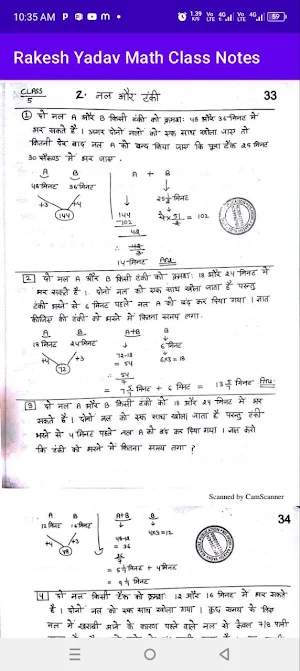 10:35 AM P 1.39 K/S Vo LTE 4G Vo LTE 4G 59
Rakesh Yadav Math Class Notes
CLASS
5
2. नल और टंकी
33
1 दो नल A और B किसी टंकी को क्रमशः 48 और 36 मिनट में
भर सकते हैं। अगर दोनों नलों को एक साथ खोला जाए तो
कितनी देर बाद नल A को बन्द किया जाए कि पूरा टैंक 25 मिनट
30 सेकण्ड में भर जाए.
A B A + B
48 मिनट 36 मिनट
+3 +4
144
144
-102
42
= 102
14 मिनट Ans
2 दो नल A और B किसी टंकी को क्रमशः 18 और 24 मिनट में
भर सकते हैं। दोनों नल को एक साथ खोला गया परन्तु
टंकी भरने से 6 मिनट पहले नल A को बंद कर दिया गया। ज्ञात
कीजिए की टंकी को भरने में कितना समय लगा.
A B A+B B
18 मिनट 24 मिनट 6 मिनट
+4 +3 72-18 6×3 = 18
72 = 54
54
7
= 7 5/7 मिनट + 6 मिनट = 13 5/7 मिनट Ans.
3 दो नल A और B किसी टंकी को 12 और 16 मिनट में भर
सकते हैं। दोनों नल को एक साथ खोला जाता है परन्तु टंकी
भरने से 4 मिनट पहले नल A को बंद कर दिया गया। ज्ञात करो
कि टंकी को भरने में कितना समय लगा?
Scanned by CamScanner
34
A B A+B B
12 मिनट 16 मिनट 4×3=12
+4 +3 48-12
48 = 36
36
7
= 5 1/7 मिनट + 4 मिनट
= 9 1/7 मिनट
4 दो नल किसी टैंक को क्रमशः 12 और 16 मिनट में भर सकते
हैं। दोनों नल को एक साथ खोला गया। कुछ समय के लिए
नल में खराबी आने के कारण पहले वाले नल से केवल 7/8 पानी